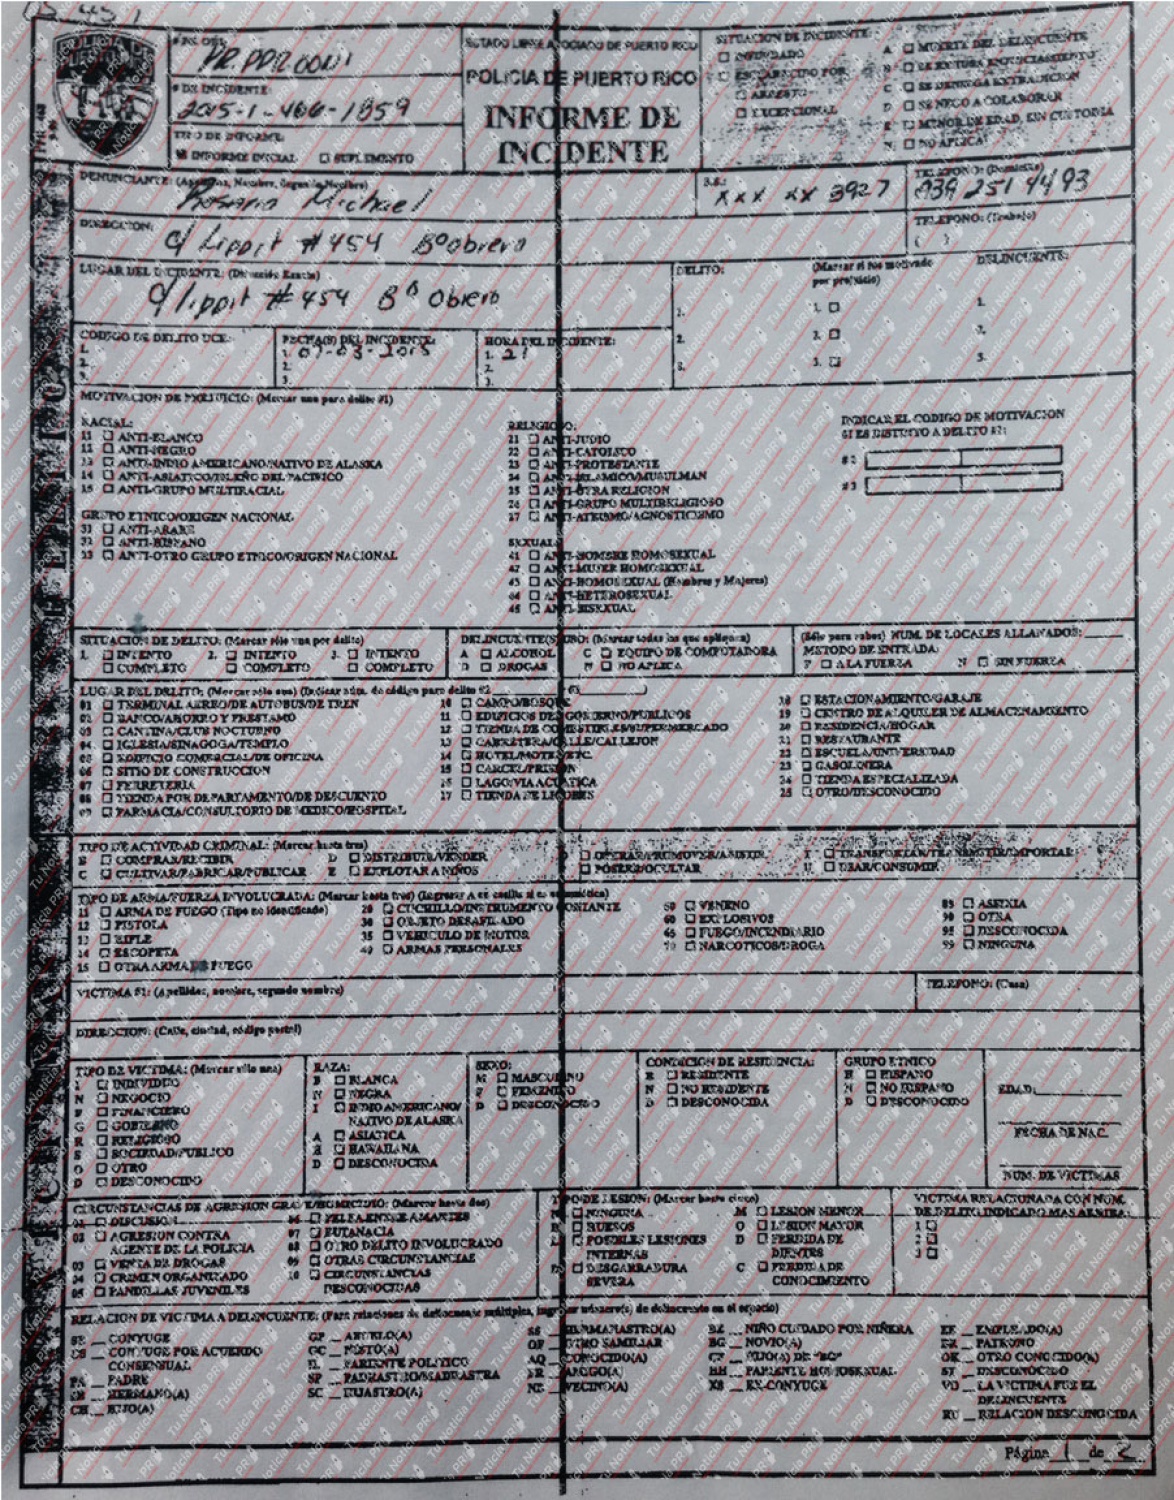 POLICIA DE
# DE ORI:
ESTADO LIBRE ASOCIADO DE PUERTO RICO
POLICIA DE PUERTO RICO
INFORME DE
INCIDENTE
# DE INCIDENTE:
2015-1-466-1859
TIPO DE INFORME:
INFORME INICIAL ☐ SUPLEMENTO
SITUACION DE INCIDENTE:
☐ INFUNDADO
☐ ESCLARECIDO POR
☐ ARRESTO
☐ EXCEPCIONAL
A ☐ MUERTE DEL DELINCUENTE
C ☐ SE DENIEGA EXTRADICION
D ☐ SE NEGO A COLABORAR
E ☐ MENOR DE EDAD, SIN CUSTODIA
N ☐ NO APLICA
DENUNCIANTE: (Apellidos, Nombre, Segundo Nombre)
Rosario Michael
S.S.:
xxx xx 3927
TELEFONO: (Domicilio)
939 251 4493
DIRECCION:
c/ Lippit #454 Bº obrero
TELEFONO: (Trabajo)
( )
LUGAR DEL INCIDENTE: (Dirección Exacta)
c/ Lippit #454 Bº Obrero
DELITO:
(Marcar si fue motivado
por prejuicio)
DELINCUENTE:
1. 1. ☐ 1.
2. 2. ☐ 2.
3. 3. ☐ 3.
CODIGO DE DELITO UCR:
1.
2.
3.
FECHA(S) DEL INCIDENTE:
2.
3.
HORA DEL INCIDENTE:
2.
3.
MOTIVACION DE PREJUICIO: (Marcar una para delito #1)
RACIAL:
11 ☐ ANTI-BLANCO
12 ☐ ANTI-NEGRO
13 ☐ ANTI-INDIO AMERICANO/NATIVO DE ALASKA
14 ☐ ANTI-ASIATICO/ISLEÑO DEL PACIFICO
15 ☐ ANTI-GRUPO MULTIRACIAL
GRUPO ETNICO/ORIGEN NACIONAL
31 ☐ ANTI-ARABE
32 ☐ ANTI-HISPANO
33 ☐ ANTI-OTRO GRUPO ETNICO/ORIGEN NACIONAL
RELIGIOSO:
21 ☐ ANTI-JUDIO
22 ☐ ANTI-CATOLICO
23 ☐ ANTI-PROTESTANTE
24 ☐ ANTI-ISLAMICO/MUSULMAN
25 ☐ ANTI-OTRA RELIGION
26 ☐ ANTI-GRUPO MULTIRELIGIOSO
27 ☐ ANTI-ATEISMO/AGNOSTICISMO
SEXUAL:
41 ☐ ANTI-HOMBRE HOMOSEXUAL
42 ☐ ANTI-MUJER HOMOSEXUAL
43 ☐ ANTI-HOMOSEXUAL (Hombres y Mujeres)
44 ☐ ANTI-HETEROSEXUAL
45 ☐ ANTI-BISEXUAL
INDICAR EL CODIGO DE MOTIVACION
SI ES DISTINTO A DELITO #1:
#2
#3
SITUACION DE DELITO: (Marcar sólo una por delito)
1. ☐ INTENTO 2. ☐ INTENTO 3. ☐ INTENTO
☐ COMPLETO ☐ COMPLETO ☐ COMPLETO
DELINCUENTE(S) USO: (Marcar todas las que apliquen)
A ☐ ALCOHOL C ☐ EQUIPO DE COMPUTADORA
D ☐ DROGAS N ☐ NO APLICA
(Sólo para robos) NUM. DE LOCALES ALLANADOS:
METODO DE ENTRADA:
F ☐ A LA FUERZA N ☐ SIN FUERZA
LUGAR DEL DELITO: (Marcar sólo una) (Indicar núm. de código para delito #2 #3 )
01 ☐ TERMINAL AEREO/DE AUTOBUS/DE TREN
02 ☐ BANCO/AHORRO Y PRESTAMO
03 ☐ CANTINA/CLUB NOCTURNO
04 ☐ IGLESIA/SINAGOGA/TEMPLO
05 ☐ EDIFICIO COMERCIAL/DE OFICINA
06 ☐ SITIO DE CONSTRUCCION
07 ☐ FERRETERIA
08 ☐ TIENDA POR DEPARTAMENTO/DE DESCUENTO
09 ☐ FARMACIA/CONSULTORIO DE MEDICO/HOSPITAL
10 ☐ CAMPO/BOSQUE
11 ☐ EDIFICIOS DE GOBIERNO/PUBLICOS
12 ☐ TIENDA DE COMESTIBLES/SUPERMERCADO
13 ☐ CARRETERA/CALLE/CALLEJON
14 ☐ HOTEL/MOTEL/ETC.
15 ☐ CARCEL/PRISION
16 ☐ LAGO/VIA ACUATICA
17 ☐ TIENDA DE LICORES
18 ☐ ESTACIONAMIENTO/GARAJE
19 ☐ CENTRO DE ALQUILER DE ALMACENAMIENTO
20 ☐ RESIDENCIA/HOGAR
21 ☐ RESTAURANTE
22 ☐ ESCUELA/UNIVERSIDAD
23 ☐ GASOLINERA
24 ☐ TIENDA ESPECIALIZADA
25 ☐ OTRO/DESCONOCIDO
TIPO DE ACTIVIDAD CRIMINAL: (Marcar hasta tres)
B ☐ COMPRAR/RECIBIR D ☐ DISTRIBUIR/VENDER O ☐ OPERAR/PROMOVER/ASISTIR T ☐ TRANSPORTAR/TRANSMITIR/IMPORTAR
C ☐ CULTIVAR/FABRICAR/PUBLICAR E ☐ EXPLOTAR A NIÑOS P ☐ POSEER/OCULTAR U ☐ USAR/CONSUMIR
TIPO DE ARMA/FUERZA INVOLUCRADA: (Marcar hasta tres) (Ingresar A en casilla si es automática)
11 ☐ ARMA DE FUEGO (Tipo no identificado)
12 ☐ PISTOLA
13 ☐ RIFLE
14 ☐ ESCOPETA
15 ☐ OTRA ARMA DE FUEGO
20 ☐ CUCHILLO/INSTRUMENTO CORTANTE
30 ☐ OBJETO DESAFILADO
35 ☐ VEHICULO DE MOTOR
40 ☐ ARMAS PERSONALES
50 ☐ VENENO
60 ☐ EXPLOSIVOS
65 ☐ FUEGO/INCENDIARIO
70 ☐ NARCOTICOS/DROGA
85 ☐ ASFIXIA
90 ☐ OTRA
95 ☐ DESCONOCIDA
99 ☐ NINGUNA
VICTIMA #1: (Apellidos, nombre, segundo nombre)
TELEFONO: (Casa)
DIRECCION: (Calle, ciudad, código postal)
TIPO DE VICTIMA: (Marcar sólo una)
I ☐ INDIVIDUO
N ☐ NEGOCIO
F ☐ FINANCIERO
G ☐ GOBIERNO
R ☐ RELIGIOSO
S ☐ SOCIEDAD/PUBLICO
O ☐ OTRO
D ☐ DESCONOCIDO
RAZA:
B ☐ BLANCA
N ☐ NEGRA
I ☐ INDIO AMERICANO/
NATIVO DE ALASKA
A ☐ ASIATICA
H ☐ HAWAIIANA
D ☐ DESCONOCIDA
SEXO:
M ☐ MASCULINO
F ☐ FEMENINO
D ☐ DESCONOCIDO
CONDICION DE RESIDENCIA:
R ☐ RESIDENTE
N ☐ NO RESIDENTE
D ☐ DESCONOCIDA
GRUPO ETNICO
H ☐ HISPANO
N ☐ NO HISPANO
D ☐ DESCONOCIDO
EDAD:
FECHA DE NAC.
NUM. DE VICTIMAS
CIRCUNSTANCIAS DE AGRESION GRAVE/HOMICIDIO: (Marcar hasta dos)
01 ☐ DISCUSION
02 ☐ AGRESION CONTRA
AGENTE DE LA POLICIA
03 ☐ VENTA DE DROGAS
04 ☐ CRIMEN ORGANIZADO
05 ☐ PANDILLAS JUVENILES
06 ☐ PELEA ENTRE AMANTES
07 ☐ EUTANACIA
08 ☐ OTRO DELITO INVOLUCRADO
09 ☐ OTRAS CIRCUNSTANCIAS
10 ☐ CIRCUNSTANCIAS
DESCONOCIDAS
TIPO DE LESION: (Marcar hasta cinco)
N ☐ NINGUNA
B ☐ HUESOS
☐ POSIBLES LESIONES
INTERNAS
☐ DESGARRADURA
SEVERA
M ☐ LESION MENOR
O ☐ LESION MAYOR
D ☐ PERDIDA DE
DIENTES
C ☐ PERDIDA DE
CONOCIMIENTO
VICTIMA RELACIONADA CON NUM.
DE DELITO INDICADO MAS ARRIBA:
1 ☐
2 ☐
3 ☐
RELACION DE VICTIMA A DELINCUENTE: (Para relaciones de delincuente múltiples, ingresar número(s) de delincuente en el espacio)
SE __ CONYUGE
CS __ CONYUGE POR ACUERDO
CONSENSUAL
PA __ PADRE
SB __ HERMANO(A)
CH __ HIJO(A)
GP __ ABUELO(A)
GC __ NIETO(A)
IL __ PARIENTE POLITICO
SP __ PADRASTRO/MADRASTRA
SC __ HIJASTRO(A)
SS __ HERMANASTRO(A)
OF __ OTRO FAMILIAR
AQ __ CONOCIDO(A)
FR __ AMIGO(A)
NE __ VECINO(A)
BE __ NIÑO CUIDADO POR NIÑERA
BG __ NOVIO(A)
CF __ HIJO(A) DE "BG"
HR __ PARIENTE HOMOSEXUAL
XS __ EX-CONYUGE
EE __ EMPLEADO(A)
ER __ PATRONO
OK __ OTRO CONOCIDO(A)
ST __ DESCONOCIDO
VO __ LA VICTIMA FUE EL
DELINCUENTE
RU __ RELACION DESCONOCIDA
Página 1 de 2
Tu Noticia PR